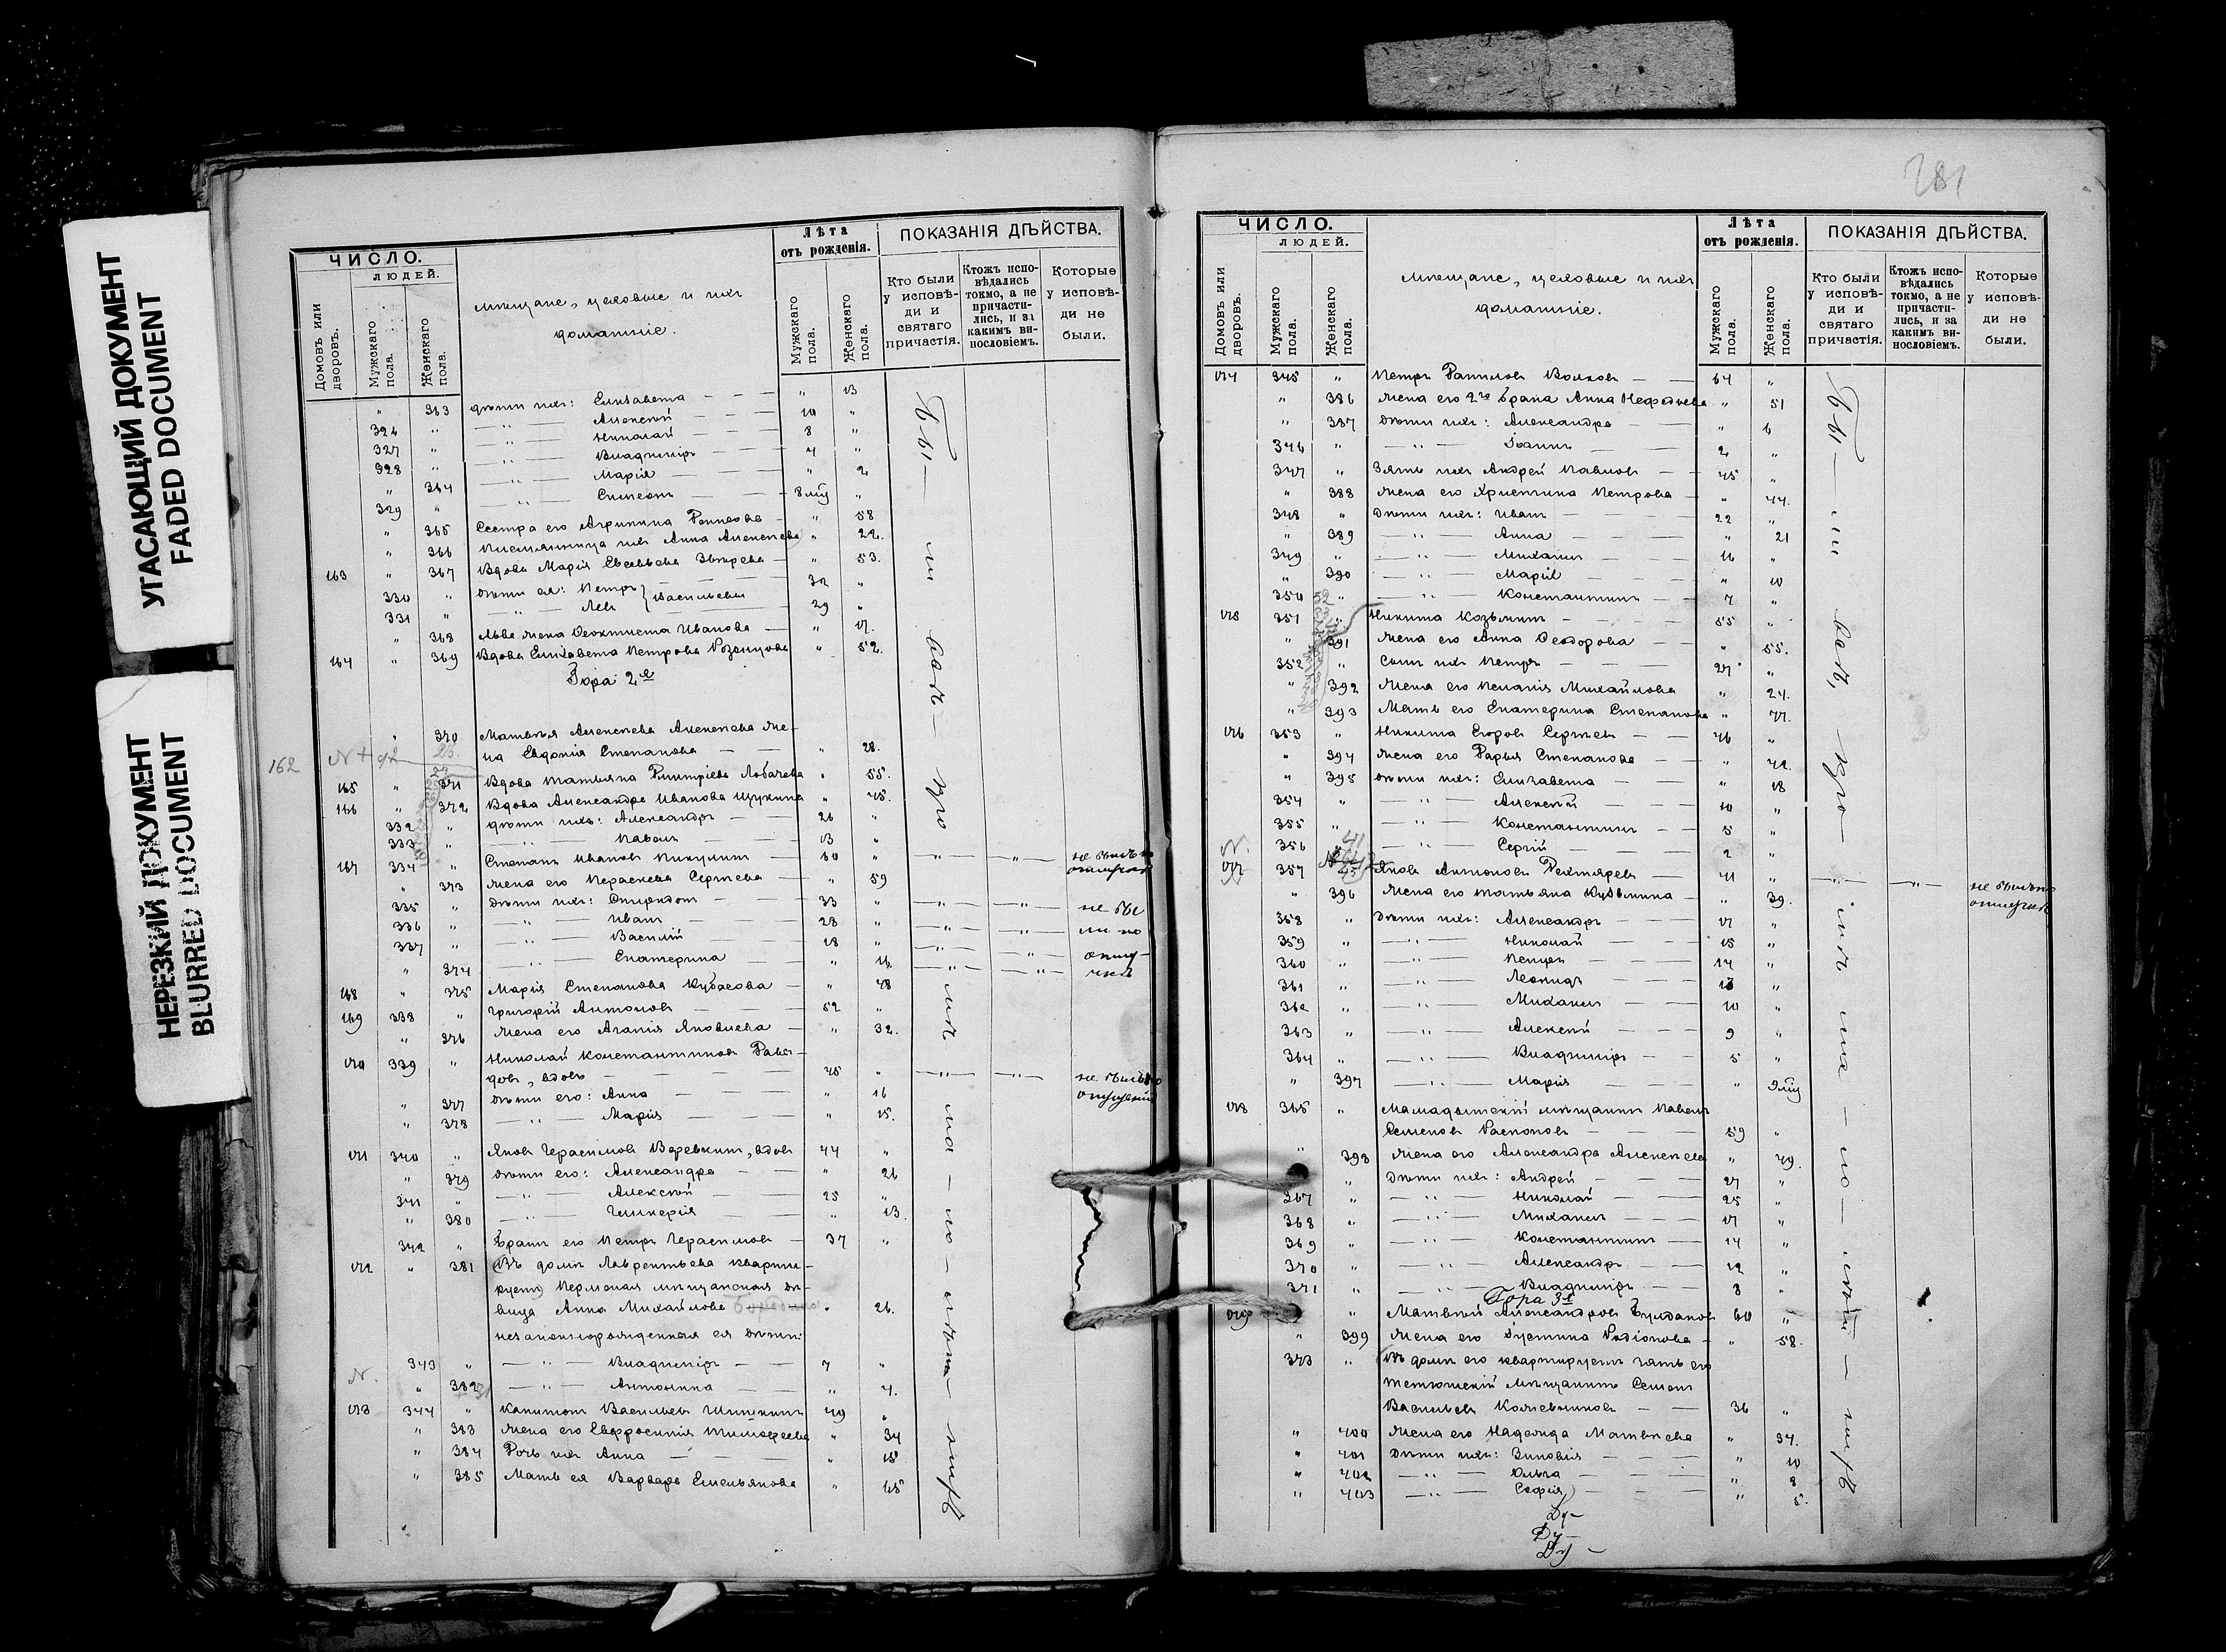 УГАСАЮЩИЙ ДОКУМЕНТ
FADED DOCUMENT
НЕРЕЗКИЙ ДОКУМЕНТ
BLURRED DOCUMENT
162
ЧИСЛО.
ЛЮДЕЙ.
Домовъ или дворовъ.
Мужскаго пола.
Женскаго пола.
мѣщане, цеховые и ихъ
домашніе.
Лѣта
отъ рожденія.
Мужскаго пола.
Женскаго пола.
ПОКАЗАНІЯ ДѢЙСТВА.
Кто были у исповѣди и святаго причастія.
Ктожъ исповѣдались токмо, а не причастились, и за какимъ винословіемъ.
Которые у исповѣди не были.
" 363 дѣти ихъ: Елизавета — — " 13
326 " — " — Алексѣй — — 10 "
327 " — " — Николай — — 8 "
328 " — " — Владиміръ — — 4 "
" 364 — " — Марія — — " 2
329 " — " — Симеонъ — — 8 мц "
" 365 Сестра его Агрипина — " 58
" 366 Племянница ихъ Анна Алексѣева " 22.
163 " 367 Вдова Марія Евсевьева Звѣрева — " 53.
330 " дѣти ея: Петръ } Васильевы 32 "
331 " — " — Левъ — 29 "
" 368 Льва жена Ѳеоктиста Иванова — " 17.
164 " 369 Вдова Елизавета Петрова " 52.
Гора 2я
" 370 Матвѣя Алексѣева Алексѣева же-
на Евдокія Степанова — — " 28.
165 " 371 Вдова Татьяна Димитріева Лобачева " 55.
166 " 372 Вдова Александра Иванова Щукина " 45.
332 " дѣти ихъ: Александръ — — 26 "
333 " — " — Павелъ — 13 "
167 334 " Степанъ Ивановъ Пикулинъ — 60 " — " — — " — не былъ по отлучкѣ
" 373 Жена его Параскева Сергѣева — " 59
335 " Дѣти ихъ: Спиридонъ — — 33 " — " — — " — не бы
336 " — " — Иванъ — — 28 " — " — — " — ли по
337 " — " — Василій — — 18 " — " — — " — отлу-
" 374 — " — Екатерина — — " 16 — " — — " — чкѣ
168 " 375 Марія Степанова Кубасова — " 48
169 338 " Григорій Антоновъ — — 52 "
" 376 Жена его Агапія Яковлева — " 32.
170 339 " Николай Константиновъ Давы-
довъ, вдовъ — — 45 " — " — — " — не былъ по отлучкѣ
" 377 Дѣти его: Анна — — " 16
" 378 — " — Марія — — " 15.
171 340 " Яковъ Герасимовъ Веревкинъ, вдовъ 44 "
" 379 Дѣти его: Александра — — " 26
341 " — " — Алексѣй — — 25 "
" 380 — " — Гликерія — — " 13.
342 " Братъ его Петръ Герасимовъ — 37 "
172 " 381 Въ домѣ Лаврентьева кварти-
руетъ Пермская мѣщанская дѣ-
вица Анна Михайлова " 26.
незаконнорожденныя ея дѣти:
343 " — " — Владиміръ — — 7 "
N. " 382 — " — Антонина — — " 4.
173 344 " Капитонъ Васильевъ Шишкинъ 49 "
" 383 Жена его Евфросинія Тимоѳеева " 34
" 384 Дочь ихъ Анна — — " 18
" 385 Мать ея Варвара Емельянова " 65
Бы — ли вст — про — ихъ — ма — ло — лѣтн — ихъ
281
ЧИСЛО.
ЛЮДЕЙ.
Домовъ или дворовъ.
Мужскаго пола.
Женскаго пола.
мѣщане, цеховые и ихъ
домашніе.
Лѣта
отъ рожденія.
Мужскаго пола.
Женскаго пола.
ПОКАЗАНІЯ ДѢЙСТВА.
Кто были у исповѣди и святаго причастія.
Ктожъ исповѣдались токмо, а не причастились, и за какимъ винословіемъ.
Которые у исповѣди не были.
174 345 " Петръ Даниловъ Волковъ — — 64 "
" 386 Жена его 2го брака Анна Меѳодьева " 51
" 387 Дѣти ихъ: Александра — — " 6
346 " — " — Іоаннъ — — 2 "
347 " Зять ихъ Андрей Павловъ — — 45 "
" 388 Жена его Христина Петрова — " 44.
348 " Дѣти ихъ: Иванъ — — 22 "
" 389 — " — Анна — — " 21
349 " — " — Михаилъ — — 16 "
" 390 — " — Марія — — " 10
350 " — " — Константинъ — — 7 "
175 351 " Никита Козьминъ — — 55 "
" 391 Жена его Анна Ѳеодорова — — " 55.
352 " Сынъ ихъ Петръ — — 27 "
" 392 Жена его Пелагія Михайлова " 24.
" 393 Мать его Екатерина Степанова " 77.
176 353 " Никита Егоровъ Сергѣевъ — — 46 "
" 394 Жена его Дарья Степанова — " 42.
" 395 Дѣти ихъ: Елизавета — — " 18
354 " — " — Алексѣй — — 10 "
355 " — " — Константинъ — — 5 "
N. 356 " — " — Сергій — — 2 "
177 357 " Яковъ Антоновъ Дехтяревъ — 41 " — " — — " — не былъ по отлучкѣ
" 396 Жена его Татьяна Кузьмина — " 39.
358 " Дѣти ихъ: Александръ — 17 "
359 " — " — Николай — — 15 "
360 " — " — Петръ — — 14 "
361 " — " — Леонидъ — — 13 "
362 " — " — Михаилъ — — 10 "
363 " — " — Алексѣй — — 9 "
364 " — " — Владиміръ — — 5 "
" 397 — " — Марія — — " 9 мц
178 365 " Мамадышскій мѣщанинъ Павелъ
Семеновъ Распоповъ — — 59 "
" 398 Жена его Александра Алексѣева " 49.
" Дѣти ихъ: Андрей — — 27 "
367 " — " — Николай — — 25 "
368 " — " — Михаилъ — — 17 "
369 " — " — Константинъ — 14 "
370 " — " — Александръ — — 12 "
371 " — " — Владиміръ — 8 "
Гора 3я
179 " Матвѣй Александровъ 60 "
" 399 Жена его Іустина Родіонова — " 58.
373 " Въ домѣ его квартируетъ зять его
Тетюшскій мѣщанинъ Семенъ
Васильевъ Колчевниковъ — — 36 "
" 400 Жена его Надежда Матвѣева " 34.
" 401 Дѣти ихъ: Зиновія — — " 10
" 402 — " — Ольга — — " 8
" 403 — " — Софія — — " 5.
Ду —
Ду —
Ду —